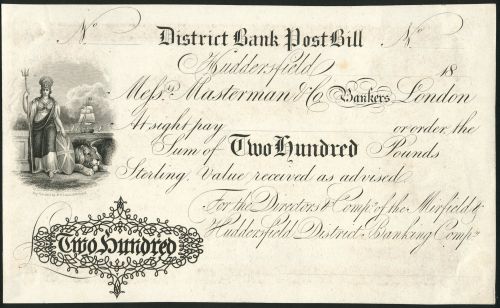 No District Bank Post Bill No
Huddersfield 18
Messrs. Masterman & Co Bankers London
At sight pay or order the
Sum of Two Hundred Pounds
Sterling, Value received as advised
For the Directors & Compy. of the Mirfield &
Huddersfield District Banking Compy.
Two Hundred